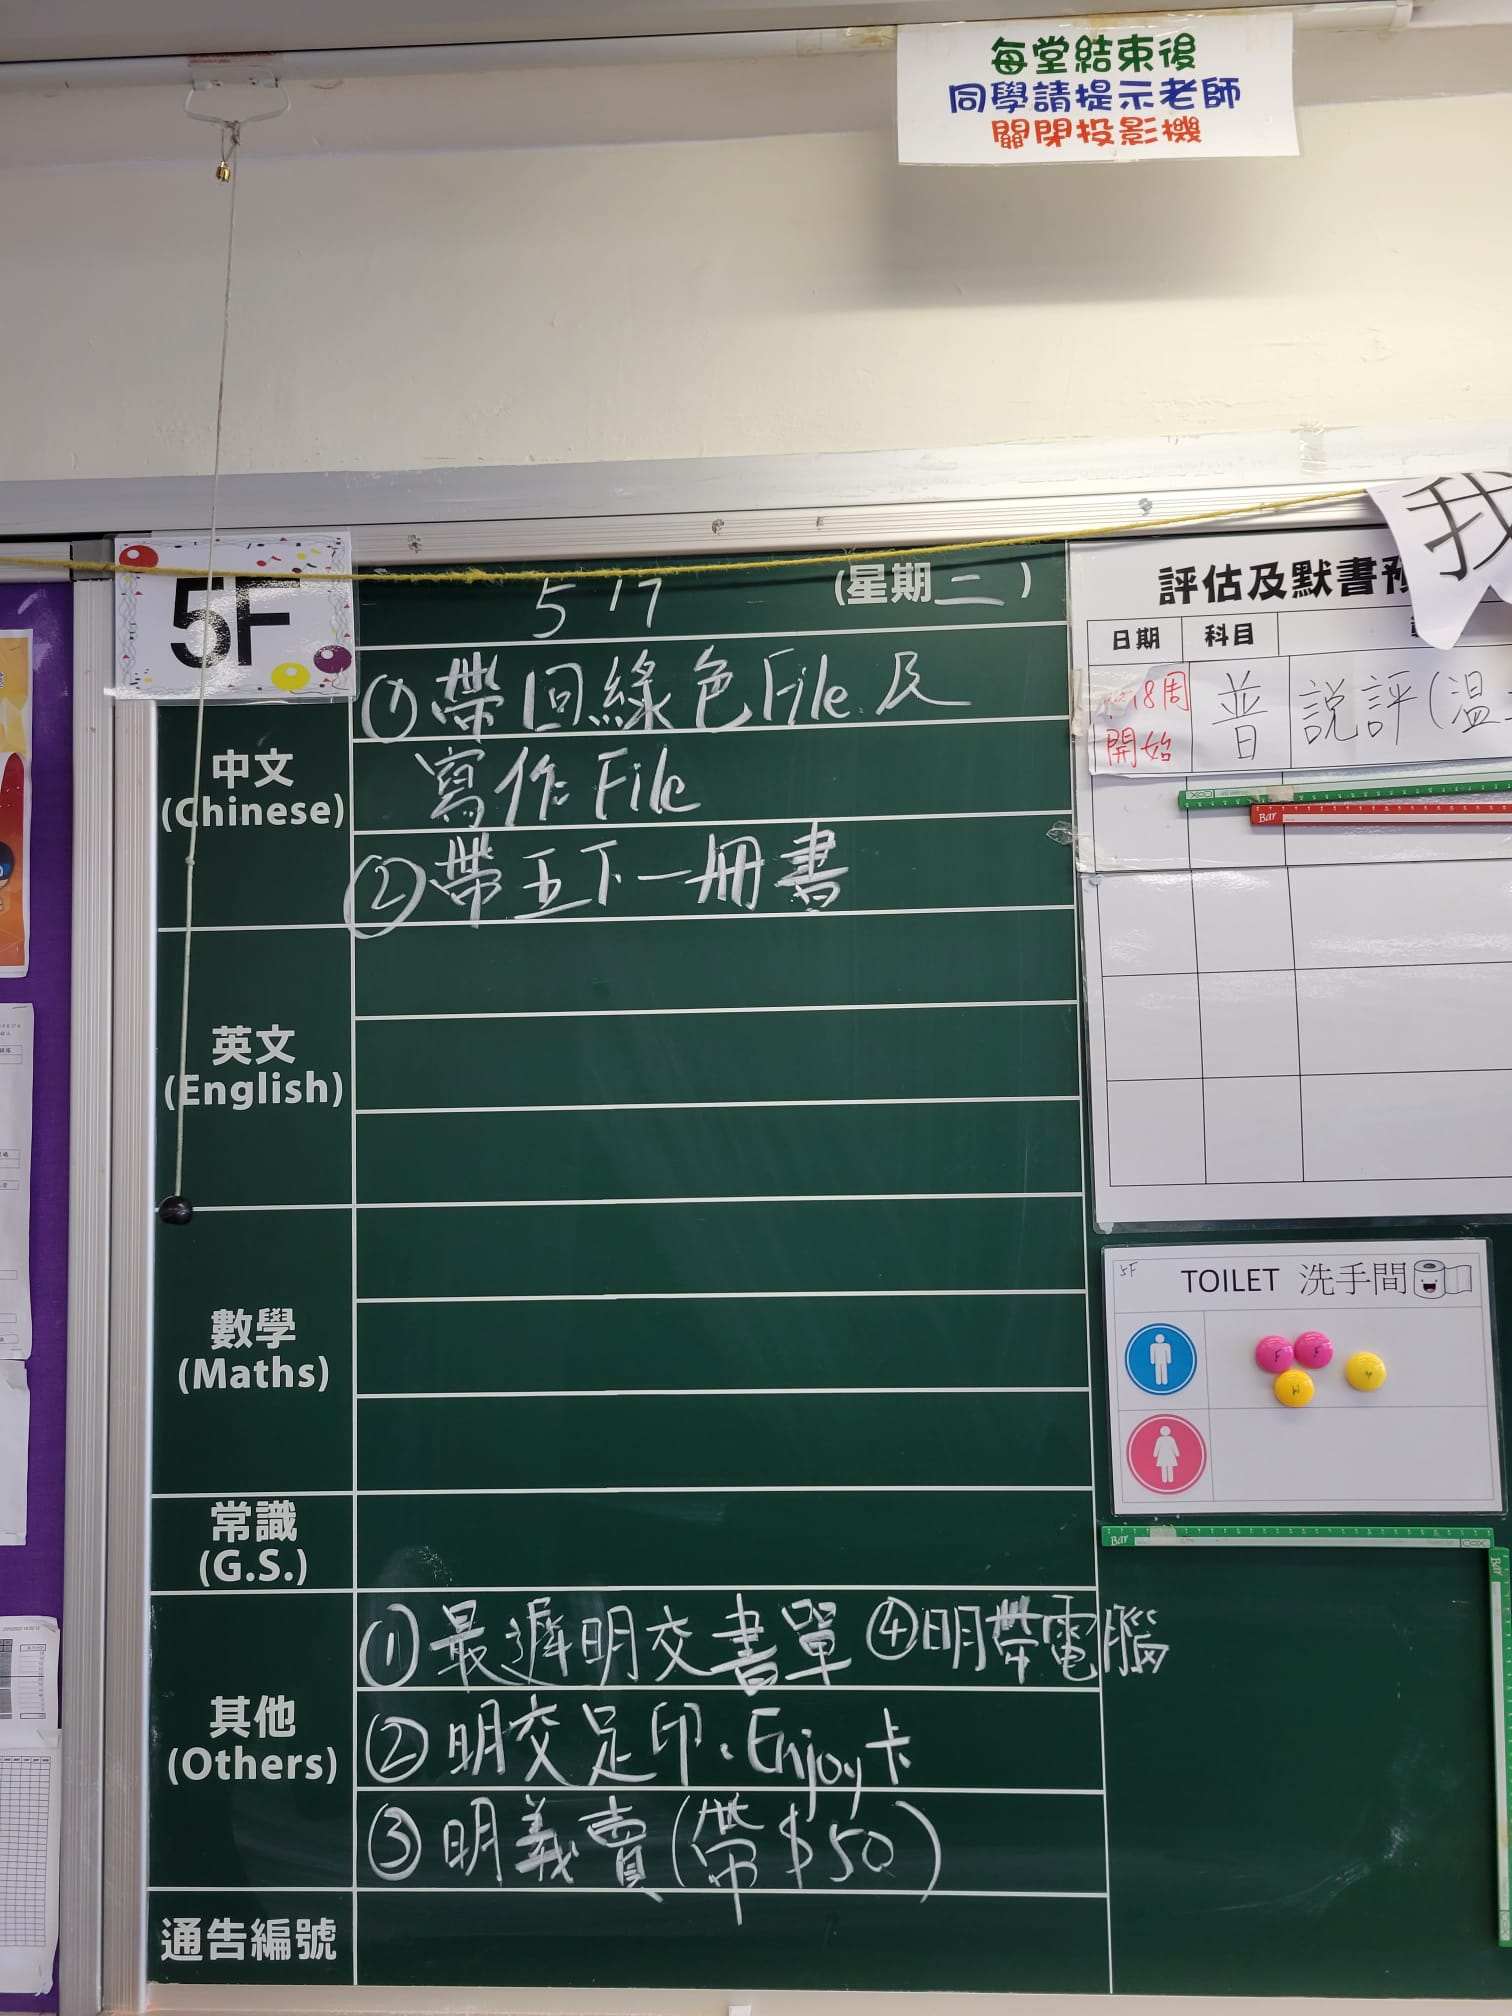 每堂結束後
同學請提示老師
關閉投影機
5F
5/7
(星期二)
中文
(Chinese)
① 帶回綠色File及
寫作File
② 帶五下一冊書
英文
(English)
數學
(Maths)
常識
(G.S.)
其他
(Others)
① 最遲明交書單 ④明帶電腦
② 明交足印、Enjoy卡
③ 明義賣(帶$50)
通告編號
我
評估及默書
日期 科目
18周
開始
普
説評(温
COX
Bar
5F
TOILET 洗手間
F F
W
Y
Bar
COX
Bar